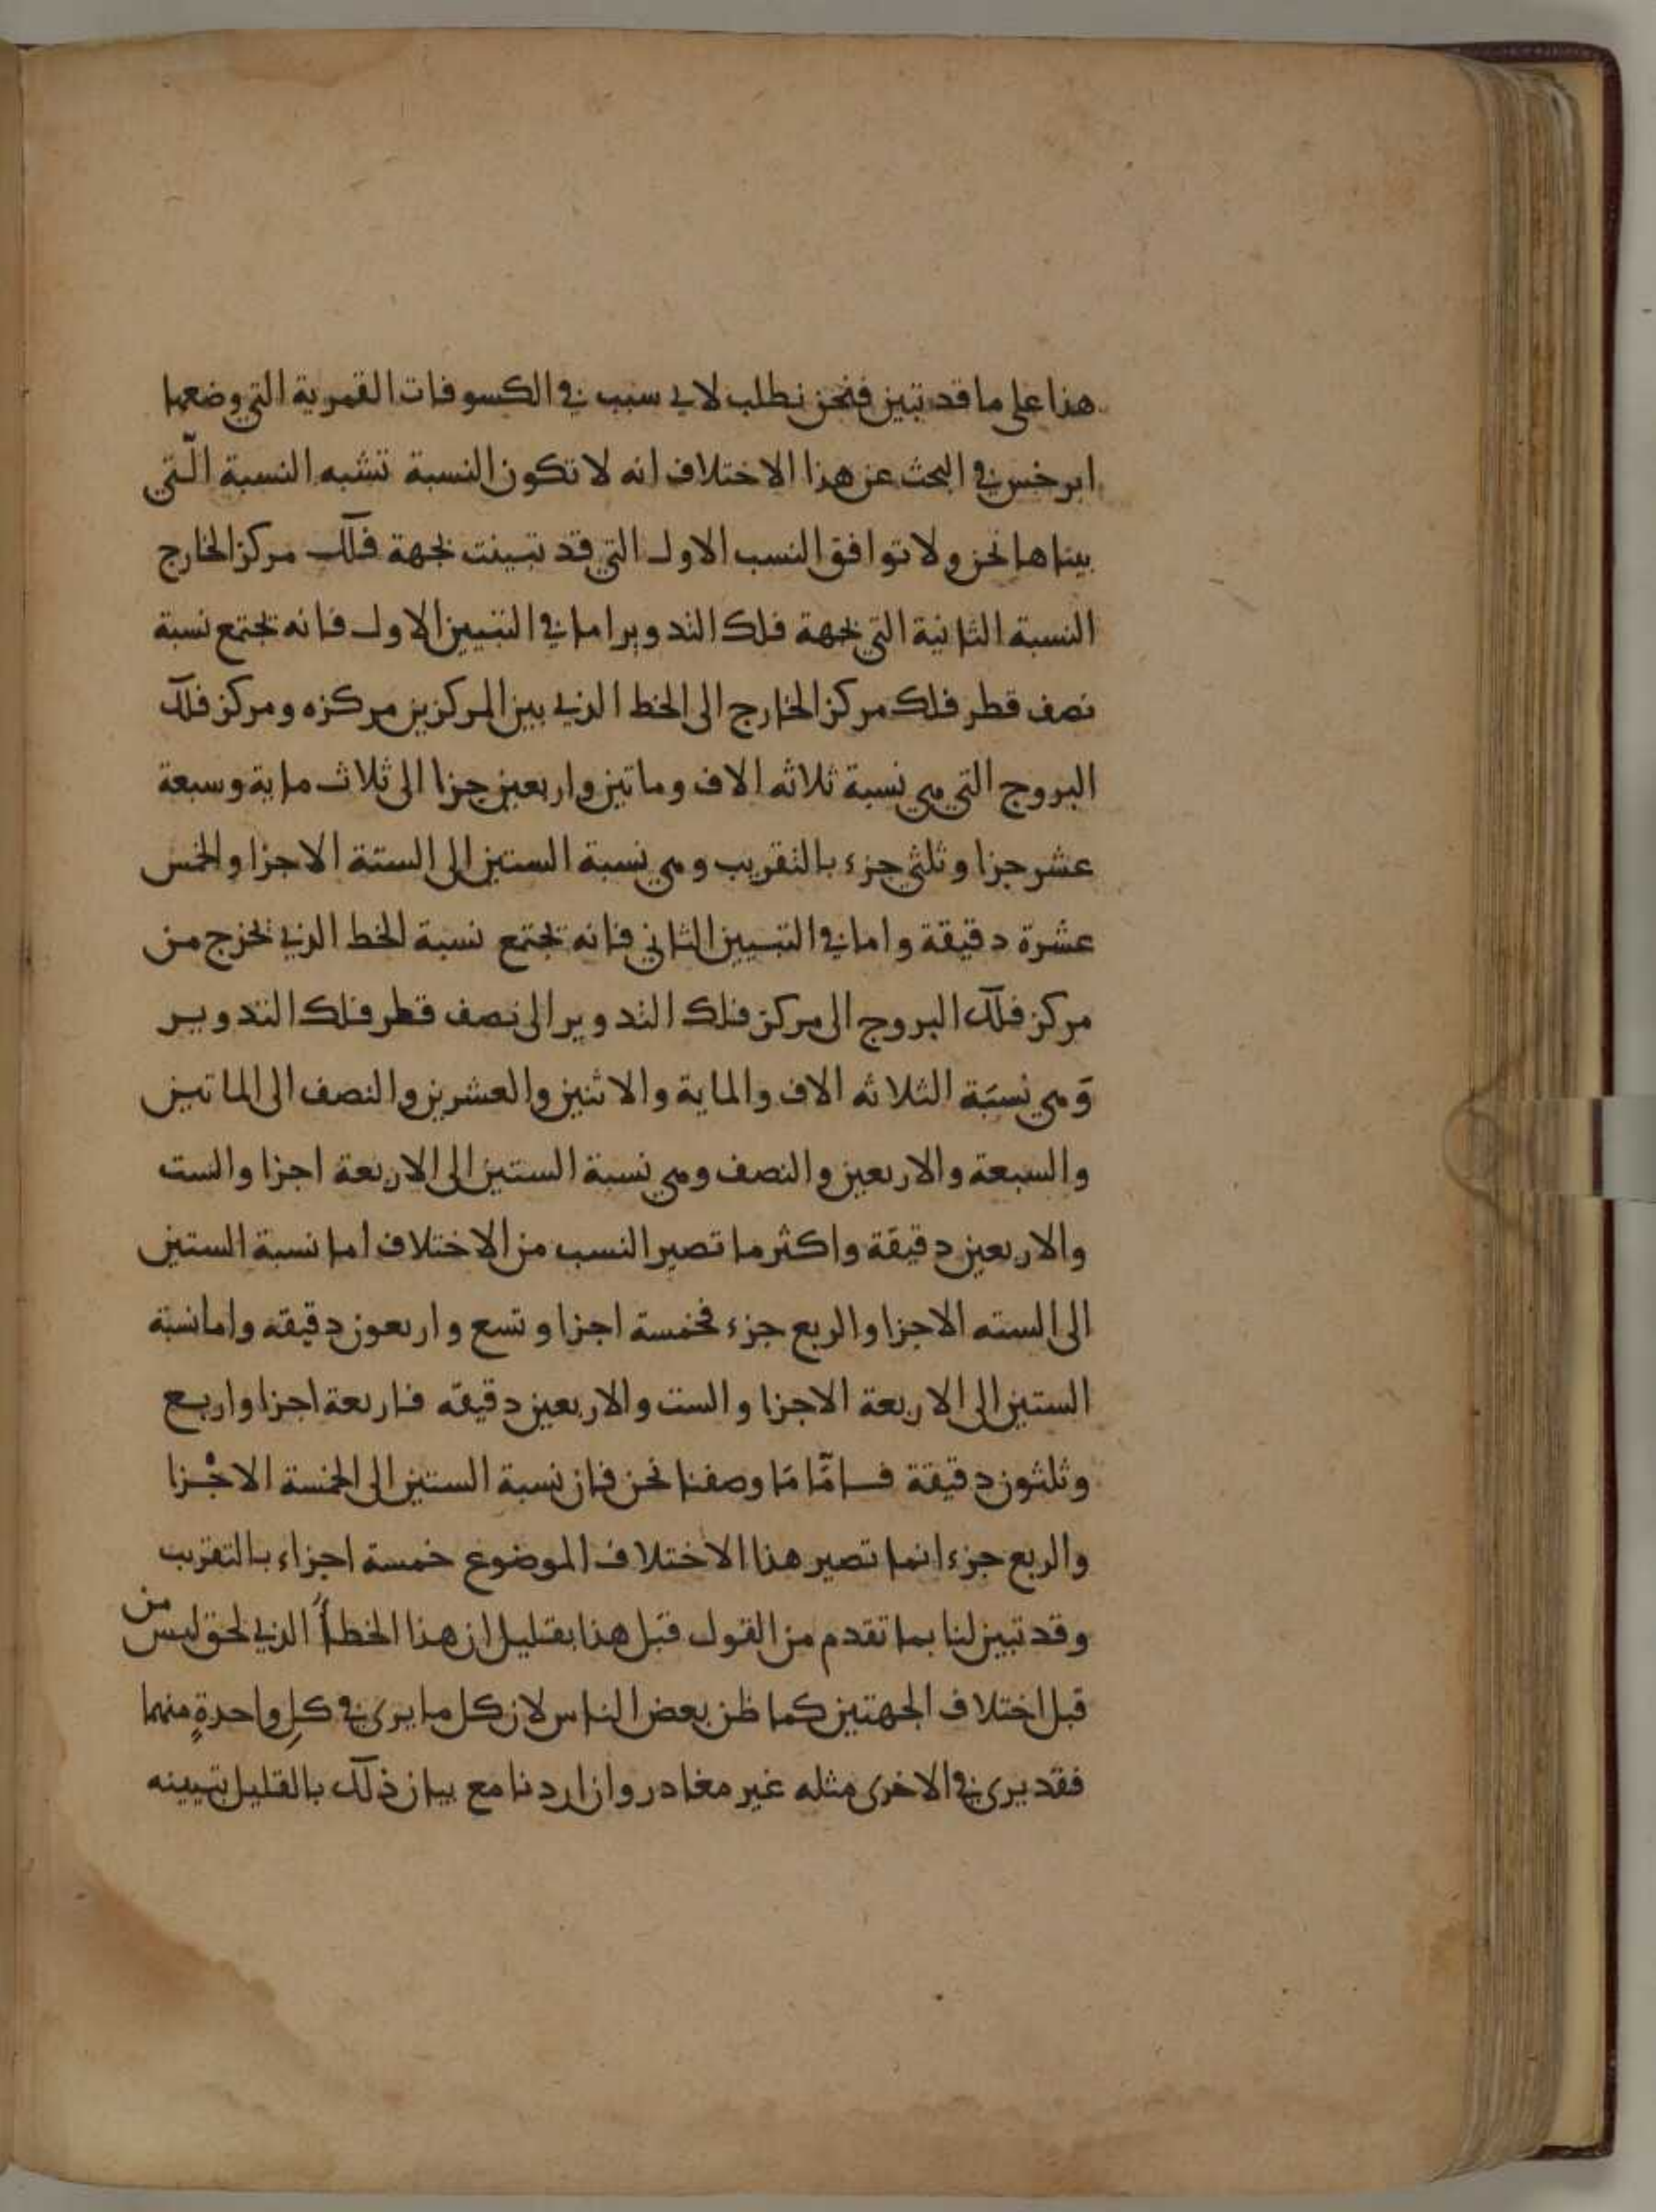 هذا على ما قد تبين فنحن نطلب لاي سبب في الكسوفات القمرية التي وضعها
ابرخس في البحث عن هذا الاختلاف انه لا تكون النسبة تشبه النسبة الّتي
بيناها نحن ولا توافق النسب الاول التي قد تبينت بجهة فلك مركز الخارج
النسبة الثانية التي بجهة فلك التدوير اما في التبيين الاول فانه تجتمع نسبة
نصف قطر فلك مركز الخارج الى الخط الذي بين المركزين مركزه ومركز فلك
البروج التي هي نسبة ثلاثه الاف وماتين واربعين جزا الى ثلاث ماية وسبعة
عشر جزا وثلثي جزء بالتقريب وهي نسبة الستين الى الستة الاجزا والخمس
عشرة دقيقة واما في التبيين الثاني فانه تجتمع نسبة الخط الذي يخرج من
مركز فلك البروج الى مركز فلك التدوير الى نصف قطر فلك التدوير
وَهي نسبَة الثلاثه الاف والماية والاثنين والعشرين والنصف الى الماتين
والسبعة والاربعين والنصف وهي نسبة الستين الى الاربعة اجزا والست
والاربعين دقيقة واكثر ما تصير النسب من الاختلاف اما نسبة الستين
الى السته الاجزا والربع جزء فخمسة اجزا وتسع واربعون دقيقه واما نسبة
الستين الى الاربعة الاجزا والست والاربعين دقيقه فاربعة اجزا واربع
وثلثون دقيقة فامّا مَا وصفنا نحن فان نسبة الستين الى الخمسة الاجْزا
والربع جزء انما تصير هذا الاختلاف الموضوع خمسة اجزاء بالتقريب
وقد تبين لنا بما تقدم من القول قبل هذا بقليل ان هذا الخطأ الذي لحق ليس من
قبل اختلاف الجهتين كما ظن بعض الناس لان كل ما يرى في كلِ واحدةٍ منهما
فقد يرى في الاخرى مثله غير مغادر وان اردنا مع بيان ذلك بالقليل تبيينه